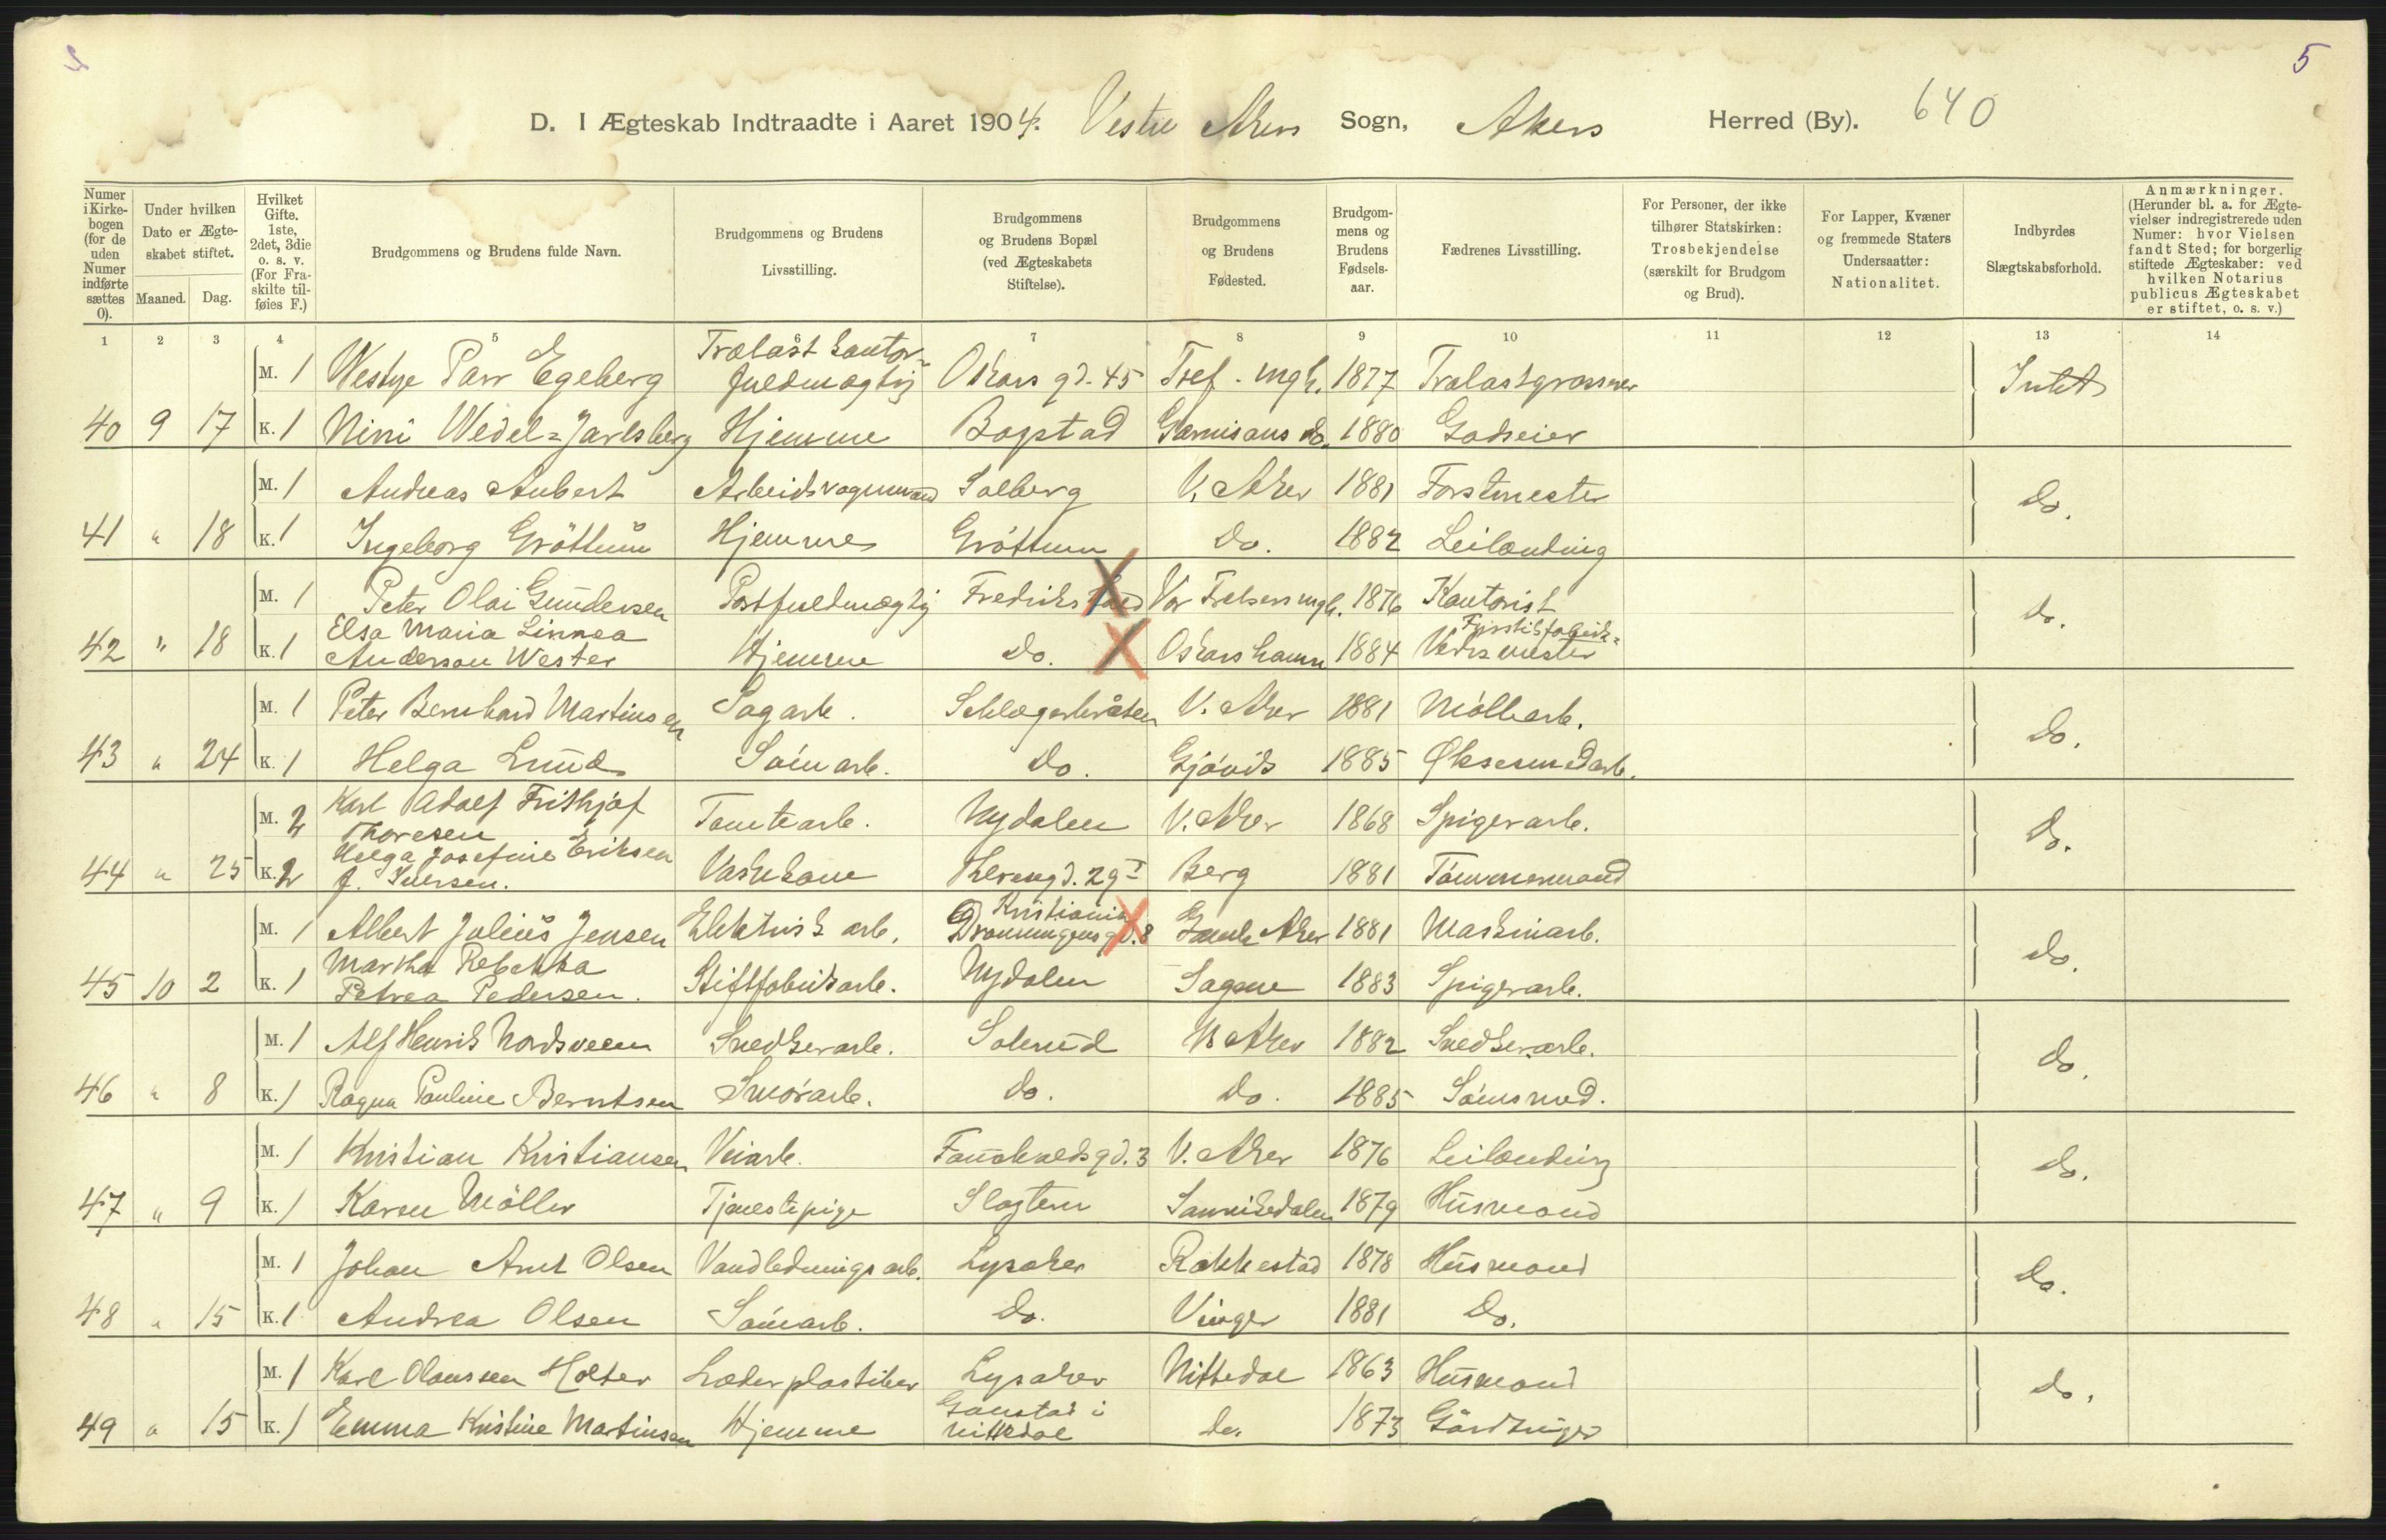 5
D. I Ægteskab Indtraadte i Aaret 1904. Vestre Akers Sogn, Akers Herred (By). 640
Numer i Kirkebogen (for de uden Numer indførte sættes 0).
Under hvilken Dato er Ægteskabet stiftet. Maaned. Dag.
Hvilket Gifte. 1ste, 2det, 3die o. s. v. (For Fraskilte tilføies F.)
Brudgommens og Brudens fulde Navn.
Brudgommens og Brudens Livsstilling.
Brudgommens og Brudens Bopæl (ved Ægteskabets Stiftelse).
Brudgommens og Brudens Fødested.
Brudgommens og Brudens Fødselsaar.
Fædrenes Livsstilling.
For Personer, der ikke tilhører Statskirken: Trosbekjendelse (særskilt for Brudgom og Brud).
For Lapper, Kvæner og fremmede Staters Undersaatter: Nationalitet.
Indbyrdes Slægtskabsforhold.
Anmærkninger. (Herunder bl. a. for Ægtevielser indregistrerede uden Numer: hvor Vielsen fandt Sted; for borgerlig stiftede Ægteskaber: ved hvilken Notarius publicus Ægteskabet er stiftet, o. s. v.)
1 2 3 4 5 6 7 8 9 10 11 12 13 14
M. 1 Westye Parr Egeberg Trælast kontorfuldmægtig Oskars gd. 45 Tref. mgh. 1877 Trælastgrosserer Intet
40 9 17 K. 1 Nini Wedel=Jarlsberg Hjemme Bogstad Garnisons do. 1880 Godseier
M. 1 Andreas Aubert Arbeidsvognmand Solberg V. Aker 1881 Forstmester do.
41 " 18 K. 1 Ingeborg Gröttum Hjemme Gröttum do. 1882 Leilænding
M. 1 Peter Olai Gundersen Postfuldmægtig Fredrikstad Vor Frelsers mgh. 1876 Kontorist do.
42 " 18 K. 1 Elsa Maria Linnea Anderson Wester Hjemme do. Oskarshamn 1884 Fyrstikfabrik= Verksmester
M. 1 Peter Bernhard Martinsen Sagarb. V. Aker 1881 Möllearb. do.
43 " 24 K. 1 Helga Lund Sömarb. do. Gjövik 1885 Øksesmedarb.
M. 2 Karl Adolf Frithjof Thoresen Tomtearb. Nydalen V. Aker 1868 Spigerarb. do.
44 " 25 K. 2 Helga Josefine Eriksen f. Iversen. Vaskekone 29 I Berg 1881 Tömmermand
M. 1 Albert Julius Jensen Elektrisk arb. Kristiania Dronningensgd. 8 Gamle Aker 1881 Maskinarb. do.
45 10 2 K. 1 Martha Rebekka Petrea Pedersen. Stiftfabrikarb. Nydalen Sagene 1883 Spigerarb.
M. 1 Alf Henrik Nordsveen Snedkerarb. Solerud V. Aker 1882 Snedkerarb. do.
46 " 8 K. 1 Ragna Pauline Berntsen Smörarb. do. do. 1885 Sömsmed.
M. 1 Kristian Kristiansen Veiarb. Fauchaldsgd. 3 V. Aker 1876 Leilænding do.
47 " 9 K. 1 Karen Möller Tjenestepige Slagtern Sannikedalen 1879 Husmand
M. 1 Johan Arnt Olsen Vandlednings arb. Lysaker Rakkestad 1878 Husmand do.
48 " 15 K. 1 Andrea Olsen Sömarb. do. Vinger 1881 do.
M. 1 Karl Olaussen Holter Læderplastiker Lysaker Nittedal 1863 Husmand do.
49 " 15 K. 1 Emma Kristine Martinsen Hjemme Gaustad i Nittedal do. 1873 Gårdbruger